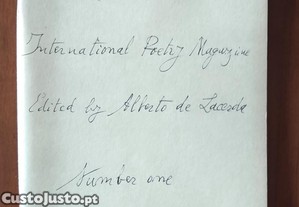 International Poetry Magazine
Edited by Alberto de Lacerda
Number one
CustoJusto.pt